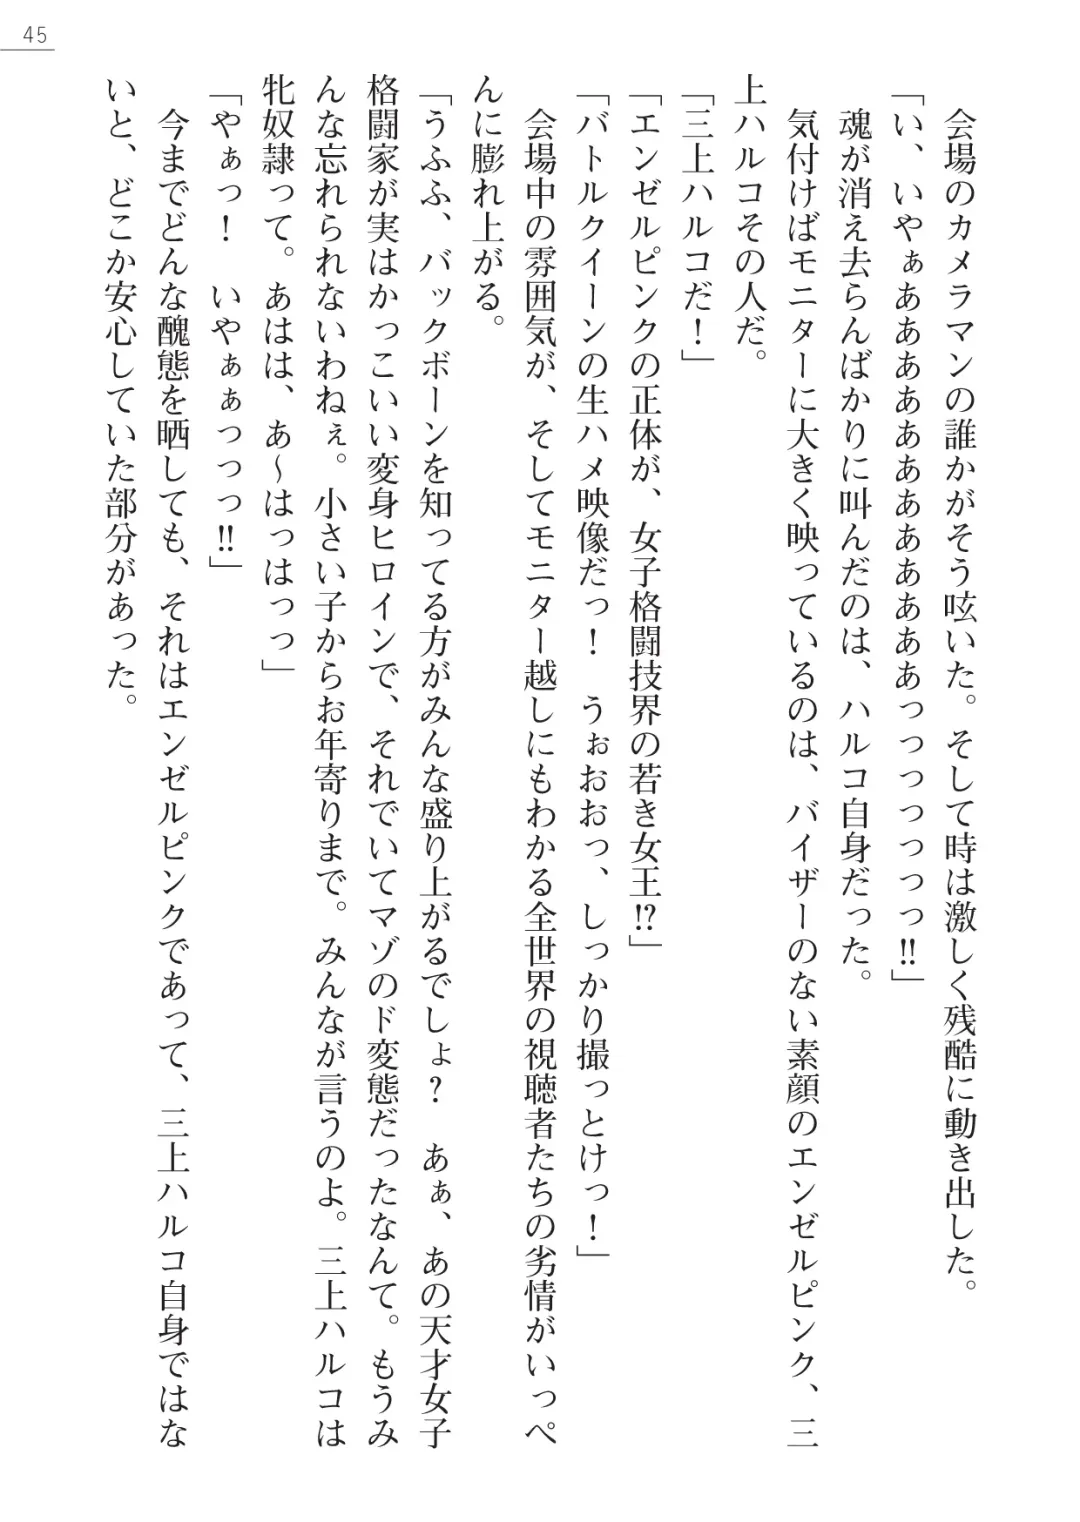 45
会場のカメラマンの誰かがそう呟いた。そして時は激しく残酷に動き出した。
「い、いやぁああああああああああああっっっっっっっ!!」
魂が消え去らんばかりに叫んだのは、ハルコ自身だった。
気付けばモニターに大きく映っているのは、バイザーのない素顔のエンゼルピンク、三
上ハルコその人だ。
「三上ハルコだ！」
「エンゼルピンクの正体が、女子格闘技界の若き女王!?」
「バトルクイーンの生ハメ映像だっ！　うぉおおっ、しっかり撮っとけっ！」
会場中の雰囲気が、そしてモニター越しにもわかる全世界の視聴者たちの劣情がいっぺ
んに膨れ上がる。
「うふふ、バックボーンを知ってる方がみんな盛り上がるでしょ？　あぁ、あの天才女子
格闘家が実はかっこいい変身ヒロインで、それでいてマゾのド変態だったなんて。もうみ
んな忘れられないわねぇ。小さい子からお年寄りまで。みんなが言うのよ。三上ハルコは
牝奴隷って。あはは、あ～はっはっっ」
「やぁっ！　いやぁぁっっっ!!」
今までどんな醜態を晒しても、それはエンゼルピンクであって、三上ハルコ自身ではな
いと、どこか安心していた部分があった。